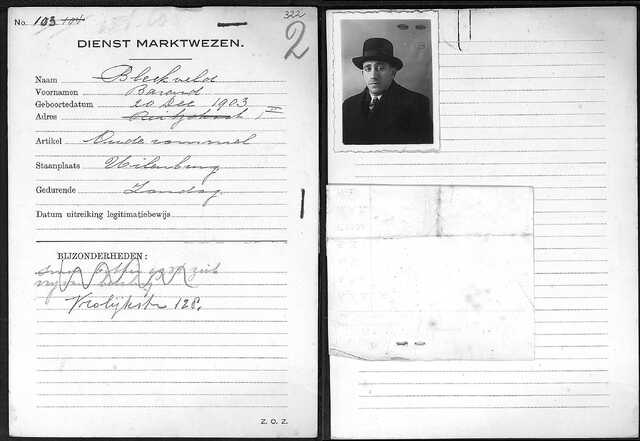 No. 103 101
322
2
DIENST MARKTWEZEN.
Naam Blekveld
Voornamen Barend
Geboortedatum 20 Dec 1903
Adres II
Artikel Oude rommel
Staanplaats Uilenburg
Gedurende Zondag
Datum uitreiking legitimatiebewijs
BIJZONDERHEDEN:
Vrolijkstr 128.
Z. O. Z.